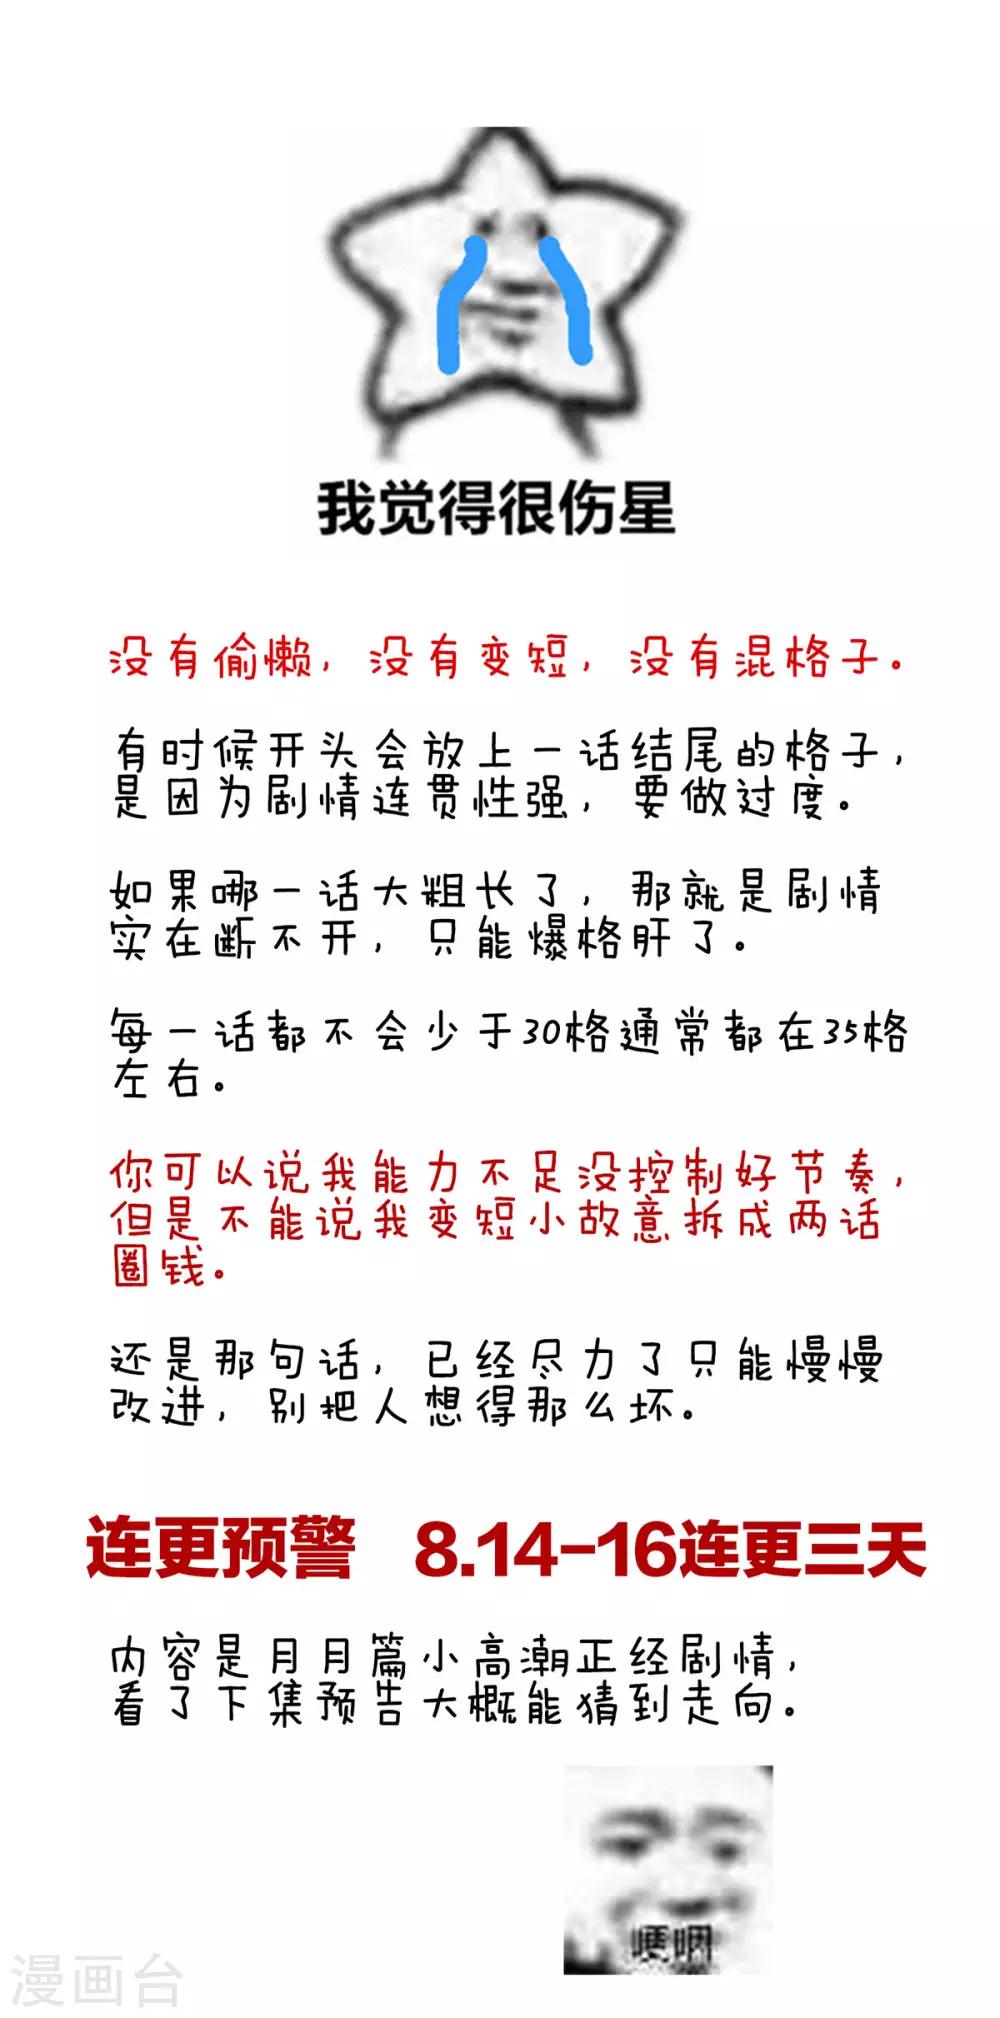 我觉得很伤星
没有偷懒，没有变短，没有混格子。
有时候开头会放上一话结尾的格子，
是因为剧情连贯性强，要做过度。
如果哪一话大粗长了，那就是剧情
实在断不开，只能爆格肝了。
每一话都不会少于30格通常都在35格
左右。
你可以说我能力不足没控制好节奏，
但是不能说我变短小故意拆成两话
圈钱。
还是那句话，已经尽力了只能慢慢
改进，别把人想得那么坏。
连更预警 8.14-16连更三天
内容是月月篇小高潮正经剧情，
看了下集预告大概能猜到走向。
哽咽
漫画台